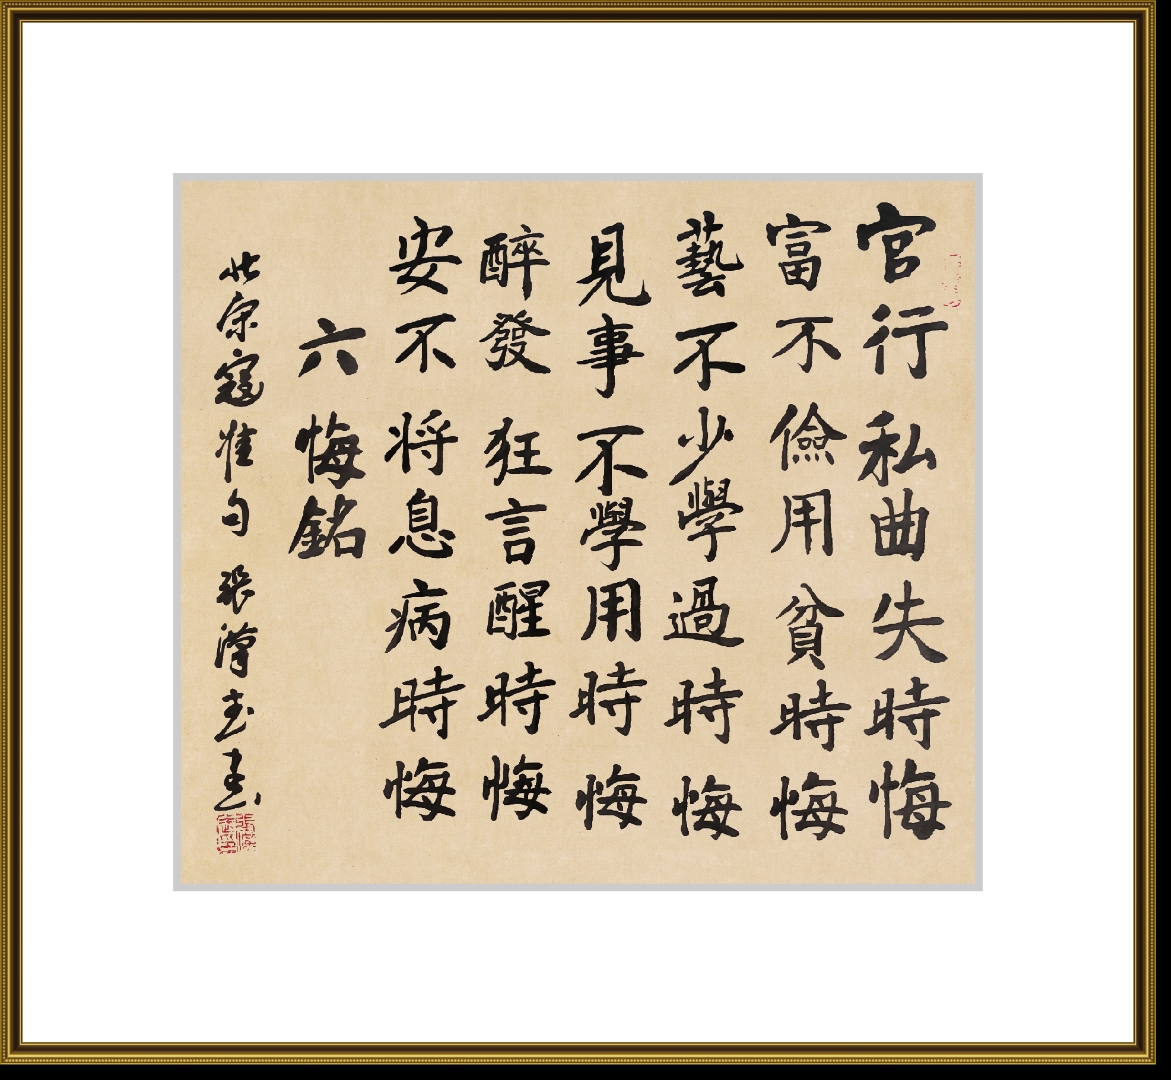 官行私曲失時悔
富不儉用貧時悔
藝不少學過時悔
見事不學用時悔
醉發狂言醒時悔
安不将息病時悔
六悔銘
北宋寇準句 張漢玉書